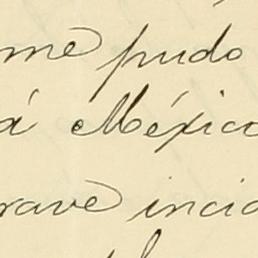 me pudo
á México
rave incid